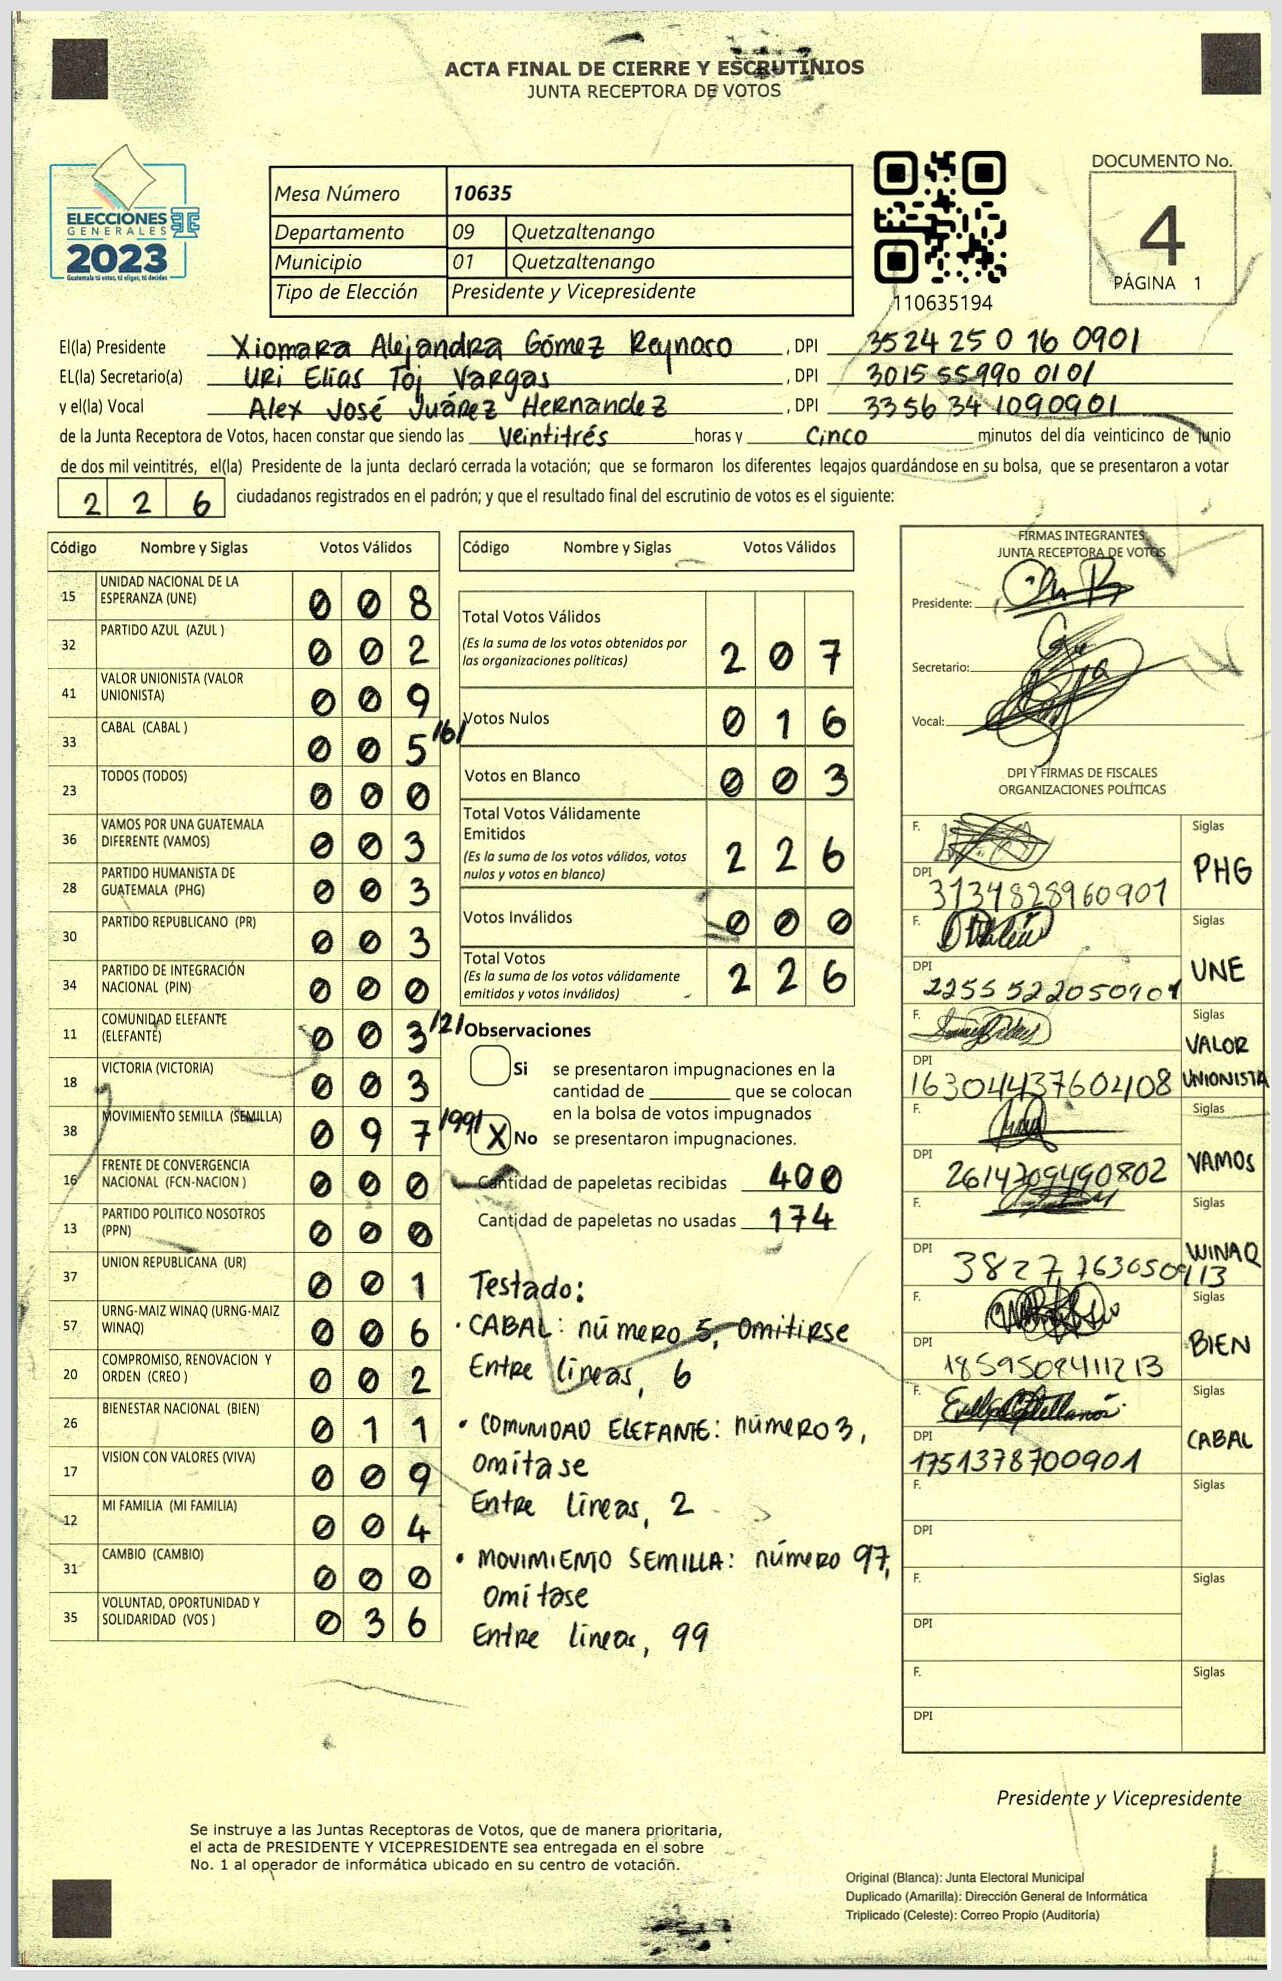 ACTA FINAL DE CIERRE Y ESCRUTINIOS
JUNTA RECEPTORA DE VOTOS
ELECCIONES
GENERALES
2023
Guatemala tú votas, tú eliges, tú decides
Mesa Número 10635
Departamento 09 Quetzaltenango
Municipio 01 Quetzaltenango
Tipo de Elección Presidente y Vicepresidente
110635194
DOCUMENTO No.
4
PÁGINA 1
El(la) Presidente Xiomara Alejandra Gómez Reynoso, DPI 3524 25 0 16 0901
EL(la) Secretario(a) Uri Elías Toj Vargas, DPI 3015 55990 0101
y el(la) Vocal Alex José Juárez Hernandez, DPI 3356 34 1090901
de la Junta Receptora de Votos, hacen constar que siendo las Veintitrés horas y Cinco minutos del día veinticinco de junio
de dos mil veintitrés, el(la) Presidente de la junta declaró cerrada la votación; que se formaron los diferentes legajos guardándose en su bolsa, que se presentaron a votar
2 2 6 ciudadanos registrados en el padrón; y que el resultado final del escrutinio de votos es el siguiente:
Código Nombre y Siglas Votos Válidos
15 UNIDAD NACIONAL DE LA ESPERANZA (UNE) 0 0 8
32 PARTIDO AZUL (AZUL ) 0 0 2
41 VALOR UNIONISTA (VALOR UNIONISTA) 0 0 9
33 CABAL (CABAL ) 0 0 5 /6/
23 TODOS (TODOS) 0 0 0
36 VAMOS POR UNA GUATEMALA DIFERENTE (VAMOS) 0 0 3
28 PARTIDO HUMANISTA DE GUATEMALA (PHG) 0 0 3
30 PARTIDO REPUBLICANO (PR) 0 0 3
34 PARTIDO DE INTEGRACIÓN NACIONAL (PIN) 0 0 0
11 COMUNIDAD ELEFANTE (ELEFANTE) 0 0 3 /2/
18 VICTORIA (VICTORIA) 0 0 3
38 MOVIMIENTO SEMILLA (SEMILLA) 0 9 7 /99/
16 FRENTE DE CONVERGENCIA NACIONAL (FCN-NACION ) 0 0 0
13 PARTIDO POLITICO NOSOTROS (PPN) 0 0 0
37 UNION REPUBLICANA (UR) 0 0 1
57 URNG-MAIZ WINAQ (URNG-MAIZ WINAQ) 0 0 6
20 COMPROMISO, RENOVACION Y ORDEN (CREO ) 0 0 2
26 BIENESTAR NACIONAL (BIEN) 0 1 1
17 VISION CON VALORES (VIVA) 0 0 9
12 MI FAMILIA (MI FAMILIA) 0 0 4
31 CAMBIO (CAMBIO) 0 0 0
35 VOLUNTAD, OPORTUNIDAD Y SOLIDARIDAD (VOS ) 0 3 6
Código Nombre y Siglas Votos Válidos
Total Votos Válidos
(Es la suma de los votos obtenidos por
las organizaciones políticas) 2 0 7
Votos Nulos 0 1 6
Votos en Blanco 0 0 3
Total Votos Válidamente
Emitidos
(Es la suma de los votos válidos, votos
nulos y votos en blanco) 2 2 6
Votos Inválidos 0 0 0
Total Votos
(Es la suma de los votos válidamente
emitidos y votos inválidos) 2 2 6
Observaciones
Si se presentaron impugnaciones en la
cantidad de ________ que se colocan
en la bolsa de votos impugnados
X No se presentaron impugnaciones.
Cantidad de papeletas recibidas 400
Cantidad de papeletas no usadas 174
Testado:
• CABAL: número 5, omitirse
Entre líneas, 6
• COMUNIDAD ELEFANTE: número 3,
omitase
Entre líneas, 2
• MOVIMIENTO SEMILLA: número 97,
omítase
Entre líneas, 99
FIRMAS INTEGRANTES
JUNTA RECEPTORA DE VOTOS
Presidente:
Secretario:
Vocal:
DPI Y FIRMAS DE FISCALES
ORGANIZACIONES POLÍTICAS
F. Siglas
DPI 3134828960901 PHG
F. Siglas
DPI 2255 522050901 UNE
F. Siglas
DPI 1630443760408 VALOR UNIONISTA
F. Siglas
DPI 2614709490802 VAMOS
F. Siglas
DPI 3827 763050913 WINAQ
F. Siglas
DPI 1859508411213 BIEN
F. Siglas
DPI 1751378700901 CABAL
F. Siglas
DPI
F. Siglas
DPI
F. Siglas
DPI
Presidente y Vicepresidente
Se instruye a las Juntas Receptoras de Votos, que de manera prioritaria,
el acta de PRESIDENTE Y VICEPRESIDENTE sea entregada en el sobre
No. 1 al operador de informática ubicado en su centro de votación.
Original (Blanca): Junta Electoral Municipal
Duplicado (Amarilla): Dirección General de Informática
Triplicado (Celeste): Correo Propio (Auditoría)